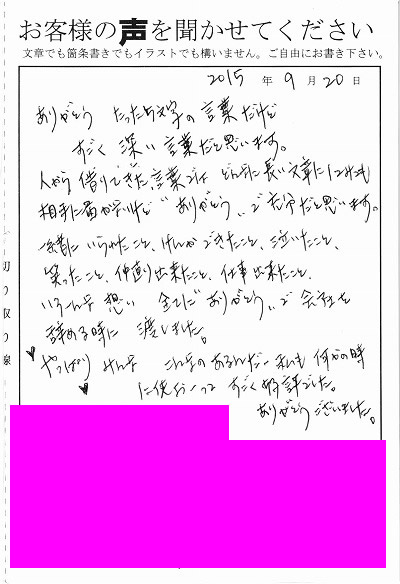 お客様の声を聞かせてください
文章でも箇条書きでもイラストでも構いません。ご自由にお書き下さい。
2015 年 9 月 20 日
ありがとう たった5文字の言葉だけど
すごく深い言葉だと思います。
人から借りてきた言葉では どんなに長い文章にしても
相手に届かないけど"ありがとう"で充分だと思います。
一緒にいられたこと、けんかできたこと、泣いたこと、
笑ったこと、仲直り出来たこと、仕事出来たこと、
いろんな想い 全てに"ありがとう"で 会社を
辞める時に 渡しました。
やっぱり みんな こんなのあるんだー 私も何かの時
に使おーって すごく好評でした。
ありがとうございました。
切り取り線